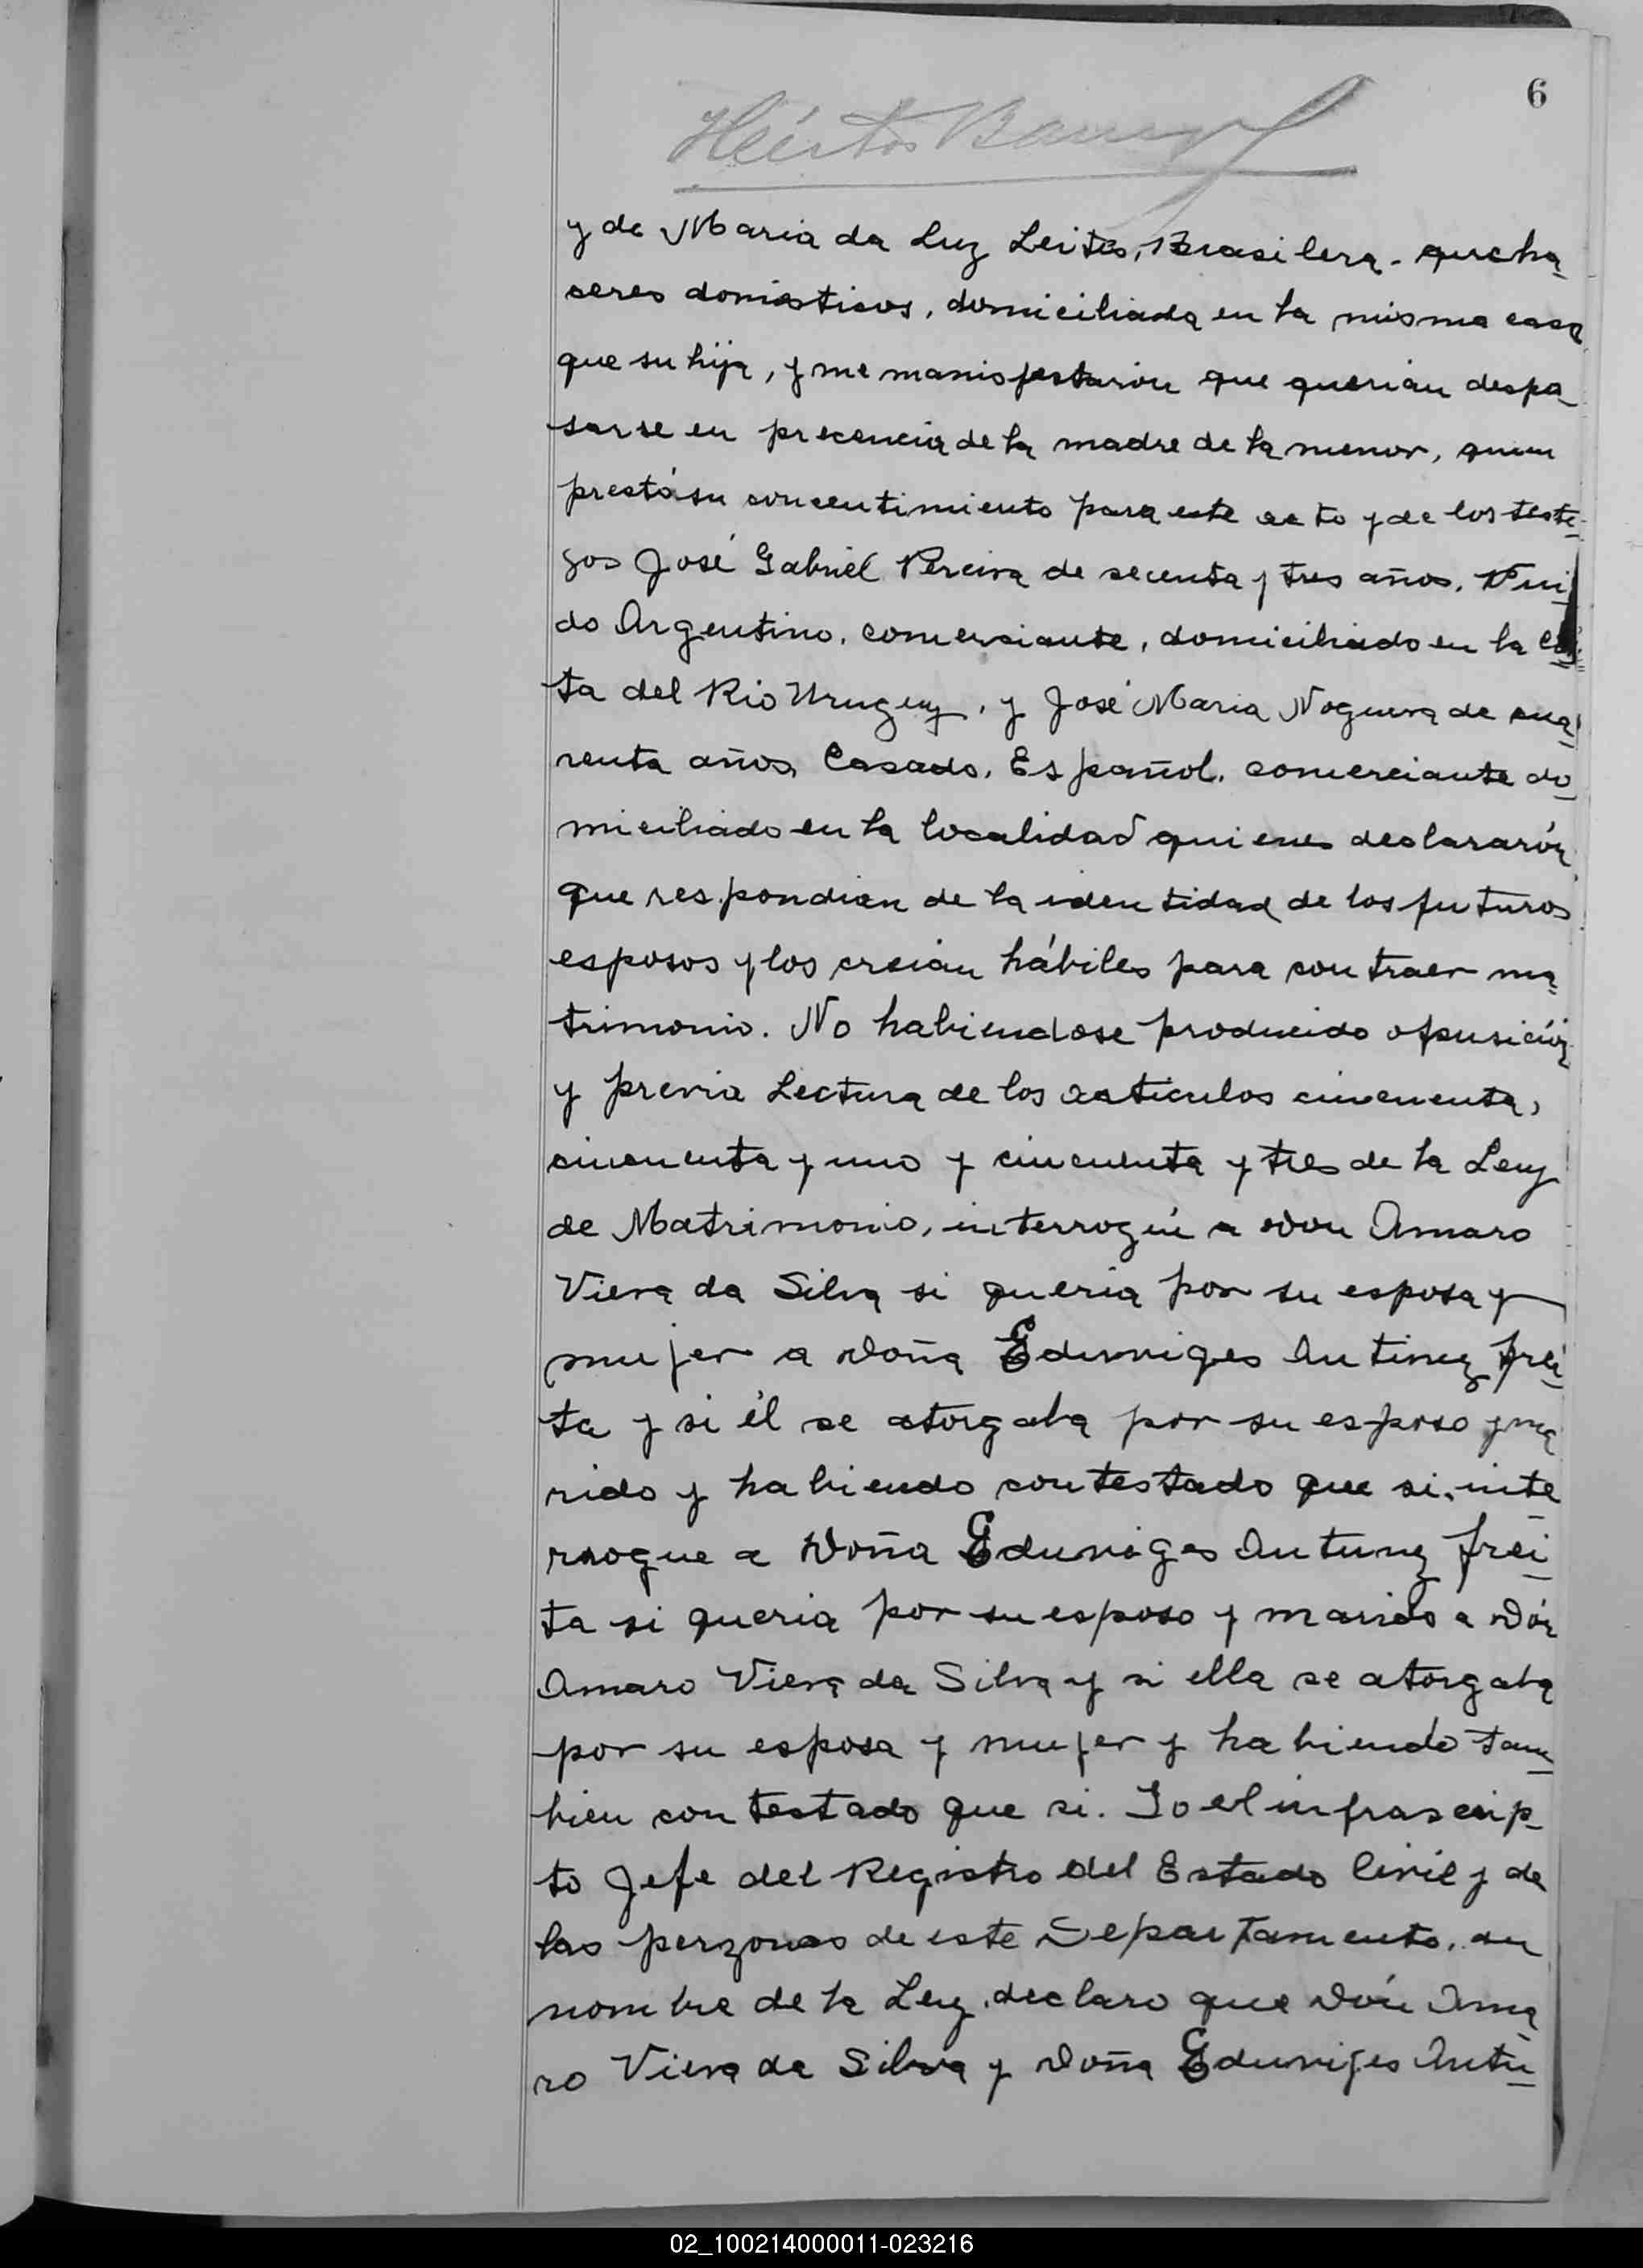 6
Héctor
y de Maria da Luz Leites, Brasilera. quecha_
seres domésticos, domiciliada en la misma casa
que su hija, y me manisfestarón que querian despo_
sarse en precencia de la madre de la menor, quien
prestó su concentimiento para este acto y de los teste_
gos José Gabriel Pereira de secenta y tres años, Viu_
do Argentino, comerciante, domiciliado en la Cos_
ta del Rio Uruguy, y José Maria Noguera de cua_
renta años, Casado, Español, comerciante do_
miciliado en la localidad quienes declararón
que respondian de la identidad de los futuros
esposos y los creian hábiles para contraer ma_
trimonio. No habiendose producido oposición
y previa Lectura de los articulos cincuenta,
cincuenta y uno y cincuenta y tres de la Ley
de Matrimonio, interrogué a Don Amaro
Viera da Silva si queria por su esposa y
mujer a Doña Eduviges Antunez frei_
ta y si él se otorgaba por su esposo y ma
rido y habiendo contestado que si, inte_
rrogue a Doña Eduviges Antunez frei_
ta si queria por su esposo y marido a Dón
Amaro Viera da Silva y si ella se atorgaba
por su esposa y mujer y habiendo tam_
bien contestado que si. Yo el infrascrip_
to Jefe del Registro del Estado Civil y de
las perzonas de este Departamento, en
nombre de la Ley, declaro que Dón Ama_
ro Viera da Silva y Doña Eduviges Antu_
02_100214000011-023216